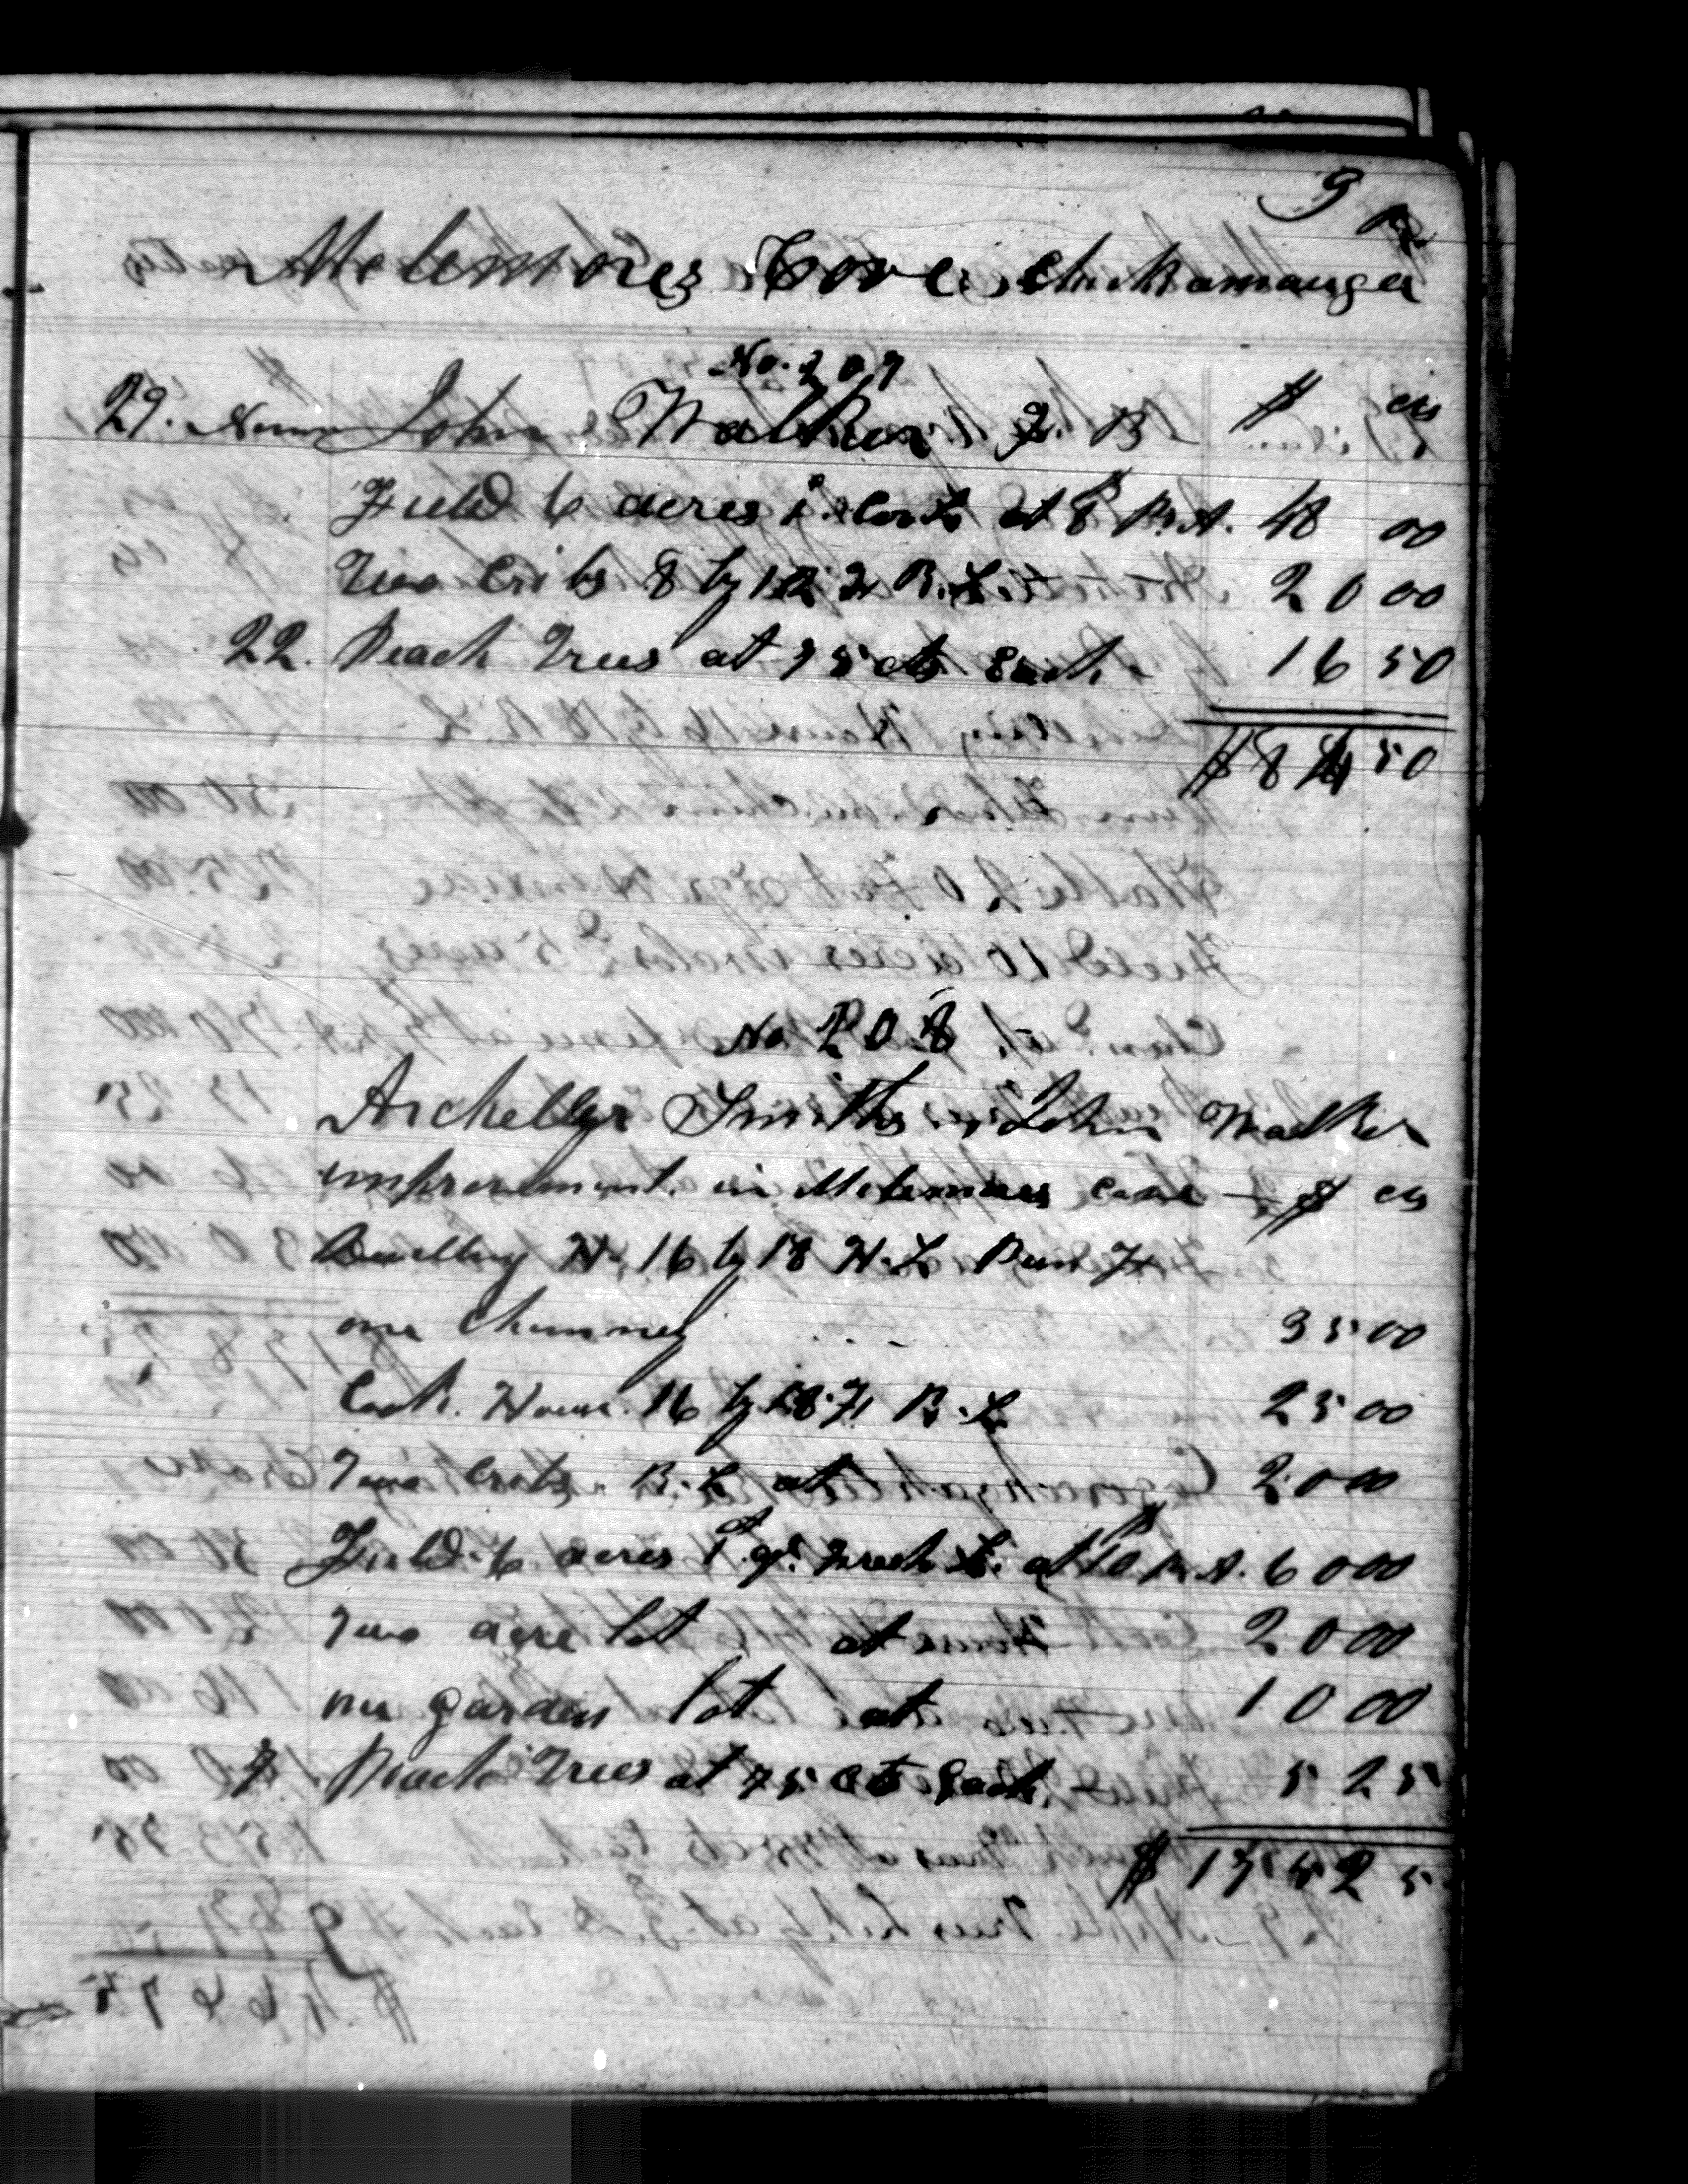 9
McLemores Cove, Chickamauga
No. 207
29. Nov. John Walker $ cts
Field 6 acres at 8 Pr. A. 48 00
Two Cribs 8 by 12 F R. L. 20 00
22. Peach Trees at 75 cts Each. 16 50
$84 50
No 208
Smiths John Walker
improvement in McLemores Cove $ cts
Dwelling H. 16 by 18 H. L. Pun F
one Chimney 35 00
Cook House 16 by 18 F R. L 25 00
Two Cribs R. L at 20 00
Field 6 acres fresh L. at 10 Pr. A. 60 00
Two acre lot at 20 00
one garden lot at 10 00
7. Peach Trees at 75 cts Each. 5 25
$ 175 25